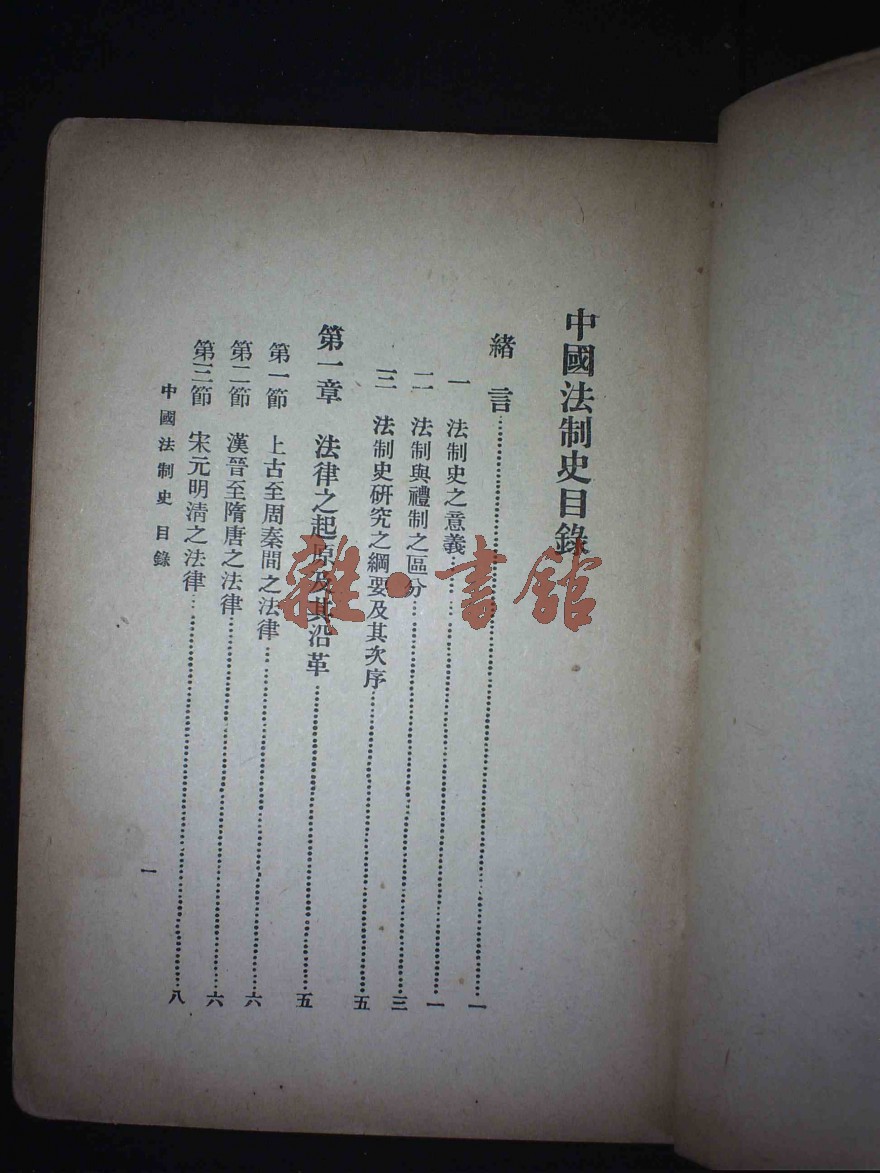 中國法制史目錄
緒言……一
一 法制史之意義……一
二 法制與禮制之區分……三
三 法制史研究之綱要及其次序……五
第一章 法律之起原及其沿革……五
第一節 上古至周秦間之法律……六
第二節 漢晉至隋唐之法律……六
第三節 宋元明清之法律……八
中國法制史 目錄
一
雜·書館